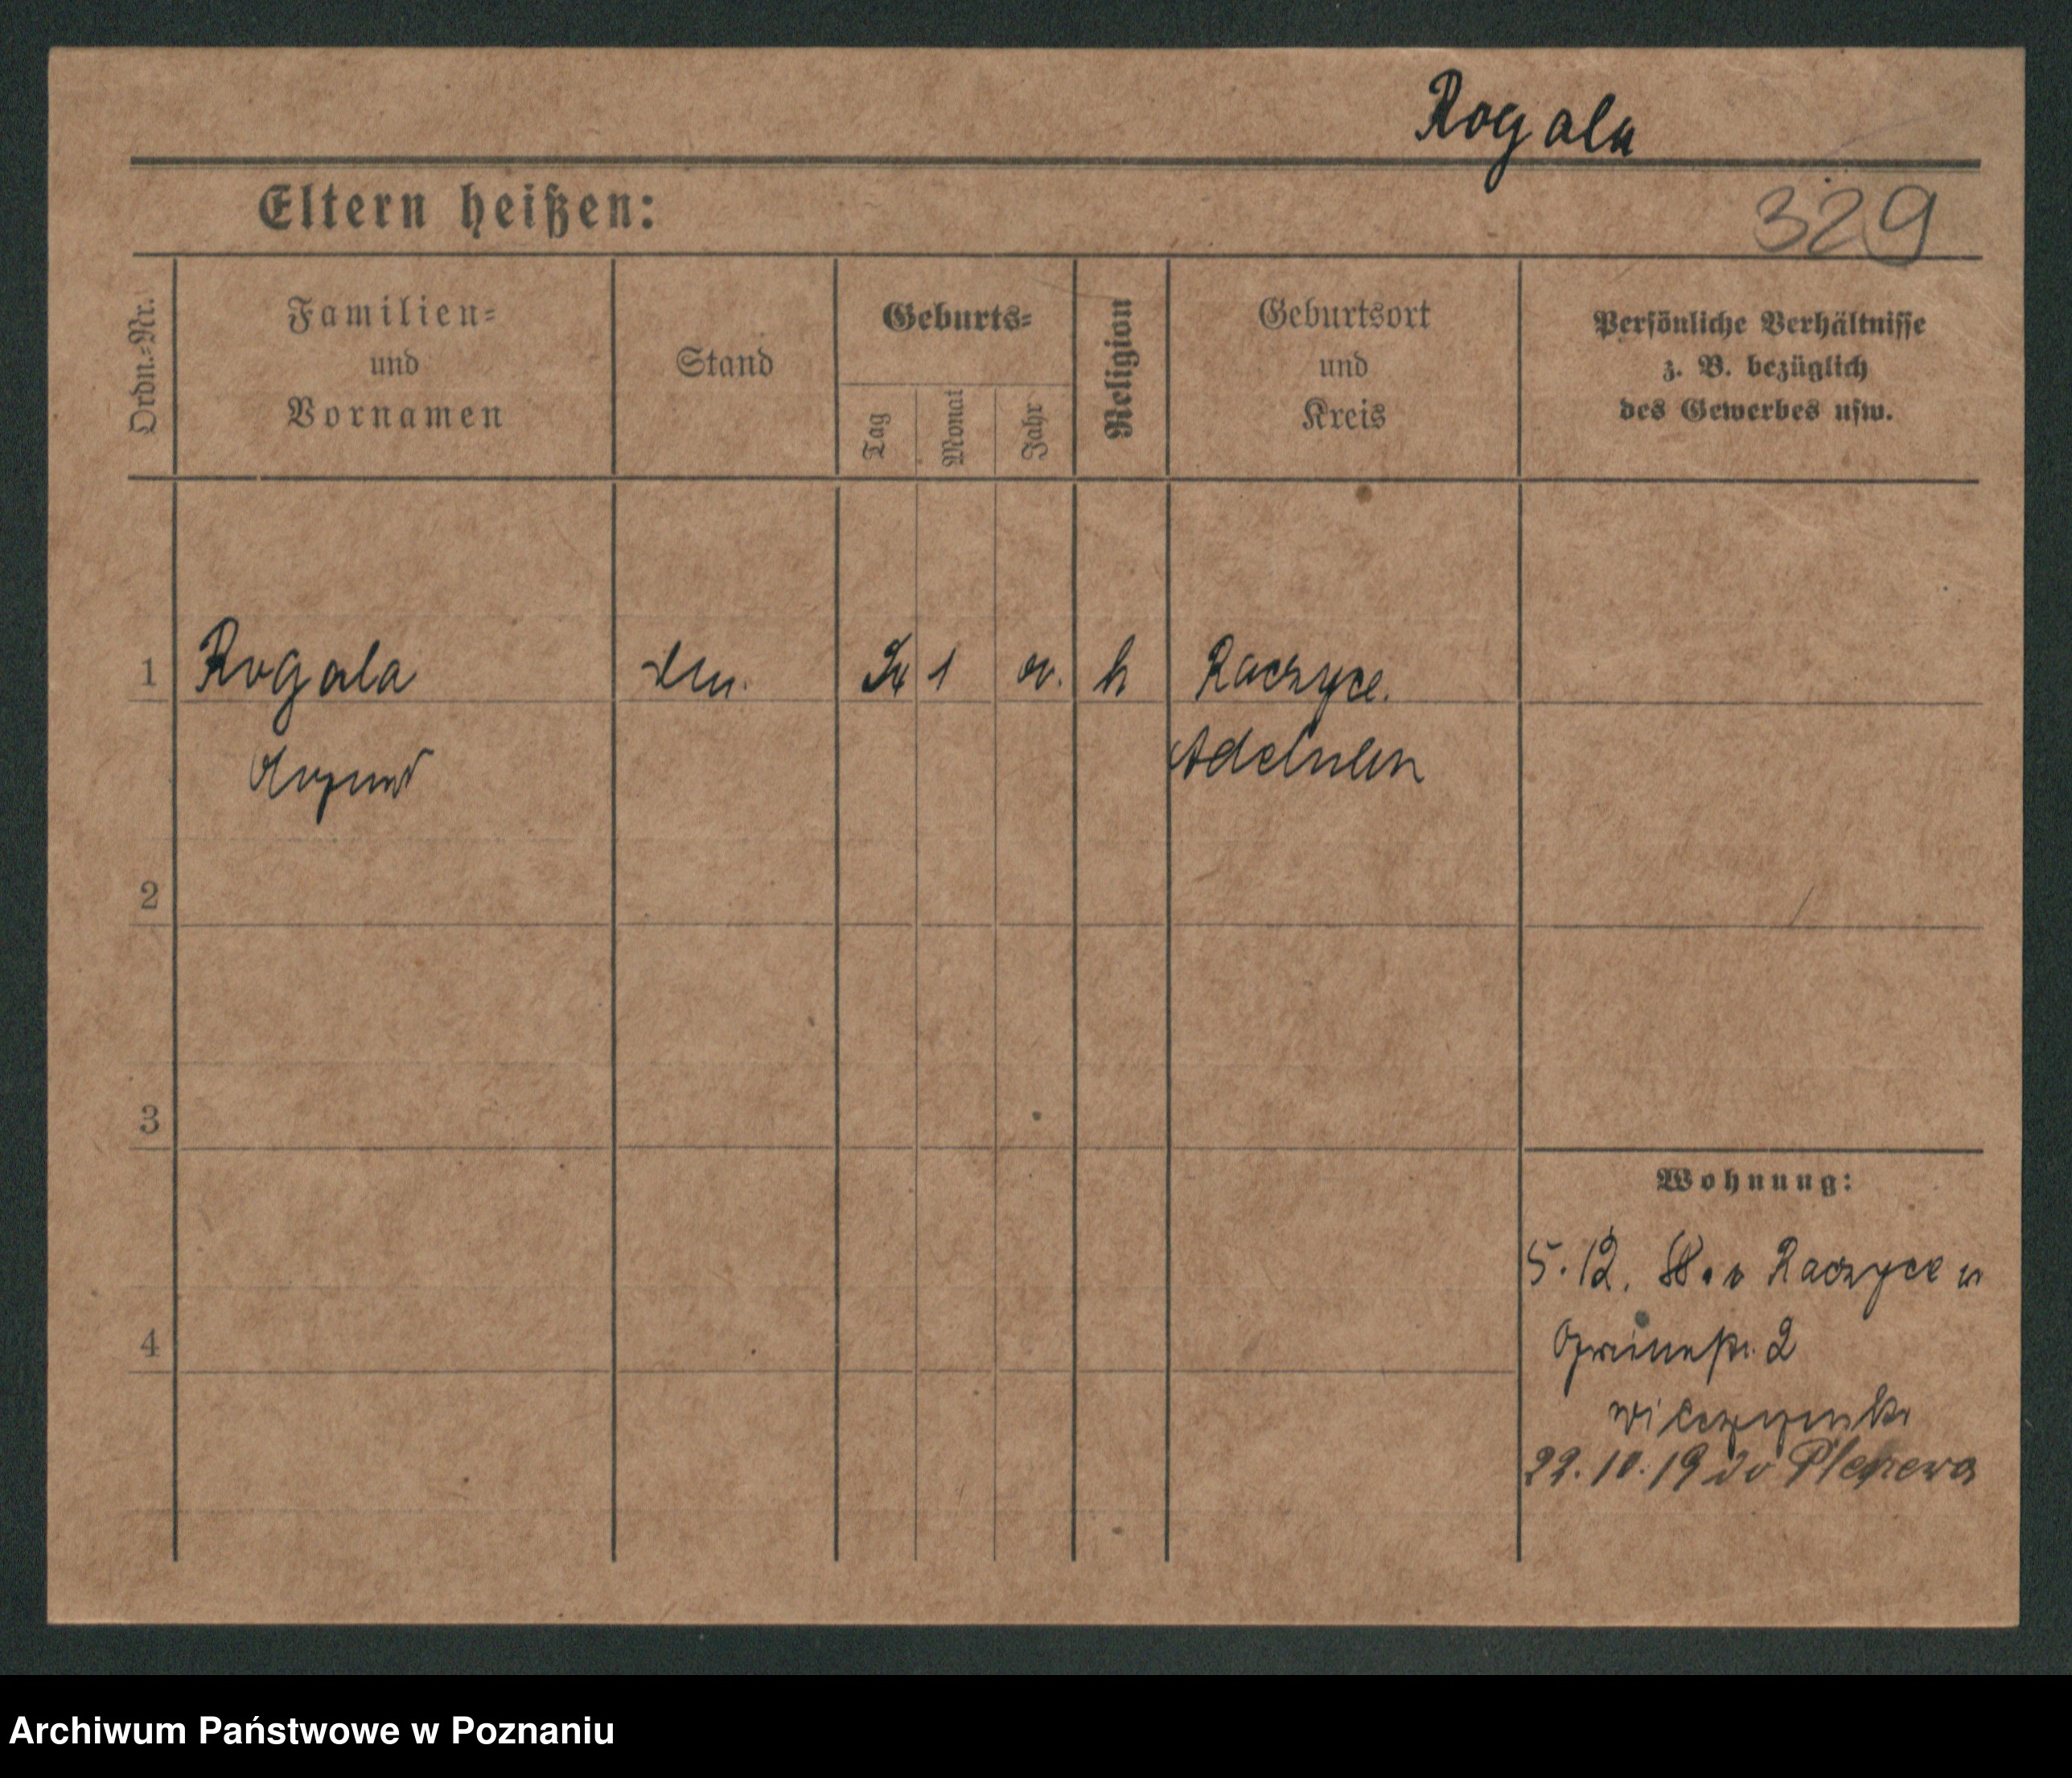 Rogala
Eltern heißen:
329
Ordn.-Nr.
Familien-
und
Vornamen
Stand
Geburts-
Tag
Monat
Jahr
Religion
Geburtsort
und
Kreis
Persönliche Verhältnisse
z. B. bezüglich
des Gewerbes usw.
1 Rogala 1 Raczyce.
Adelnau
2
3
4
Wohnung:
5.12. Raczyce
2
22.10.19 do Pleszewa
Archiwum Państwowe w Poznaniu